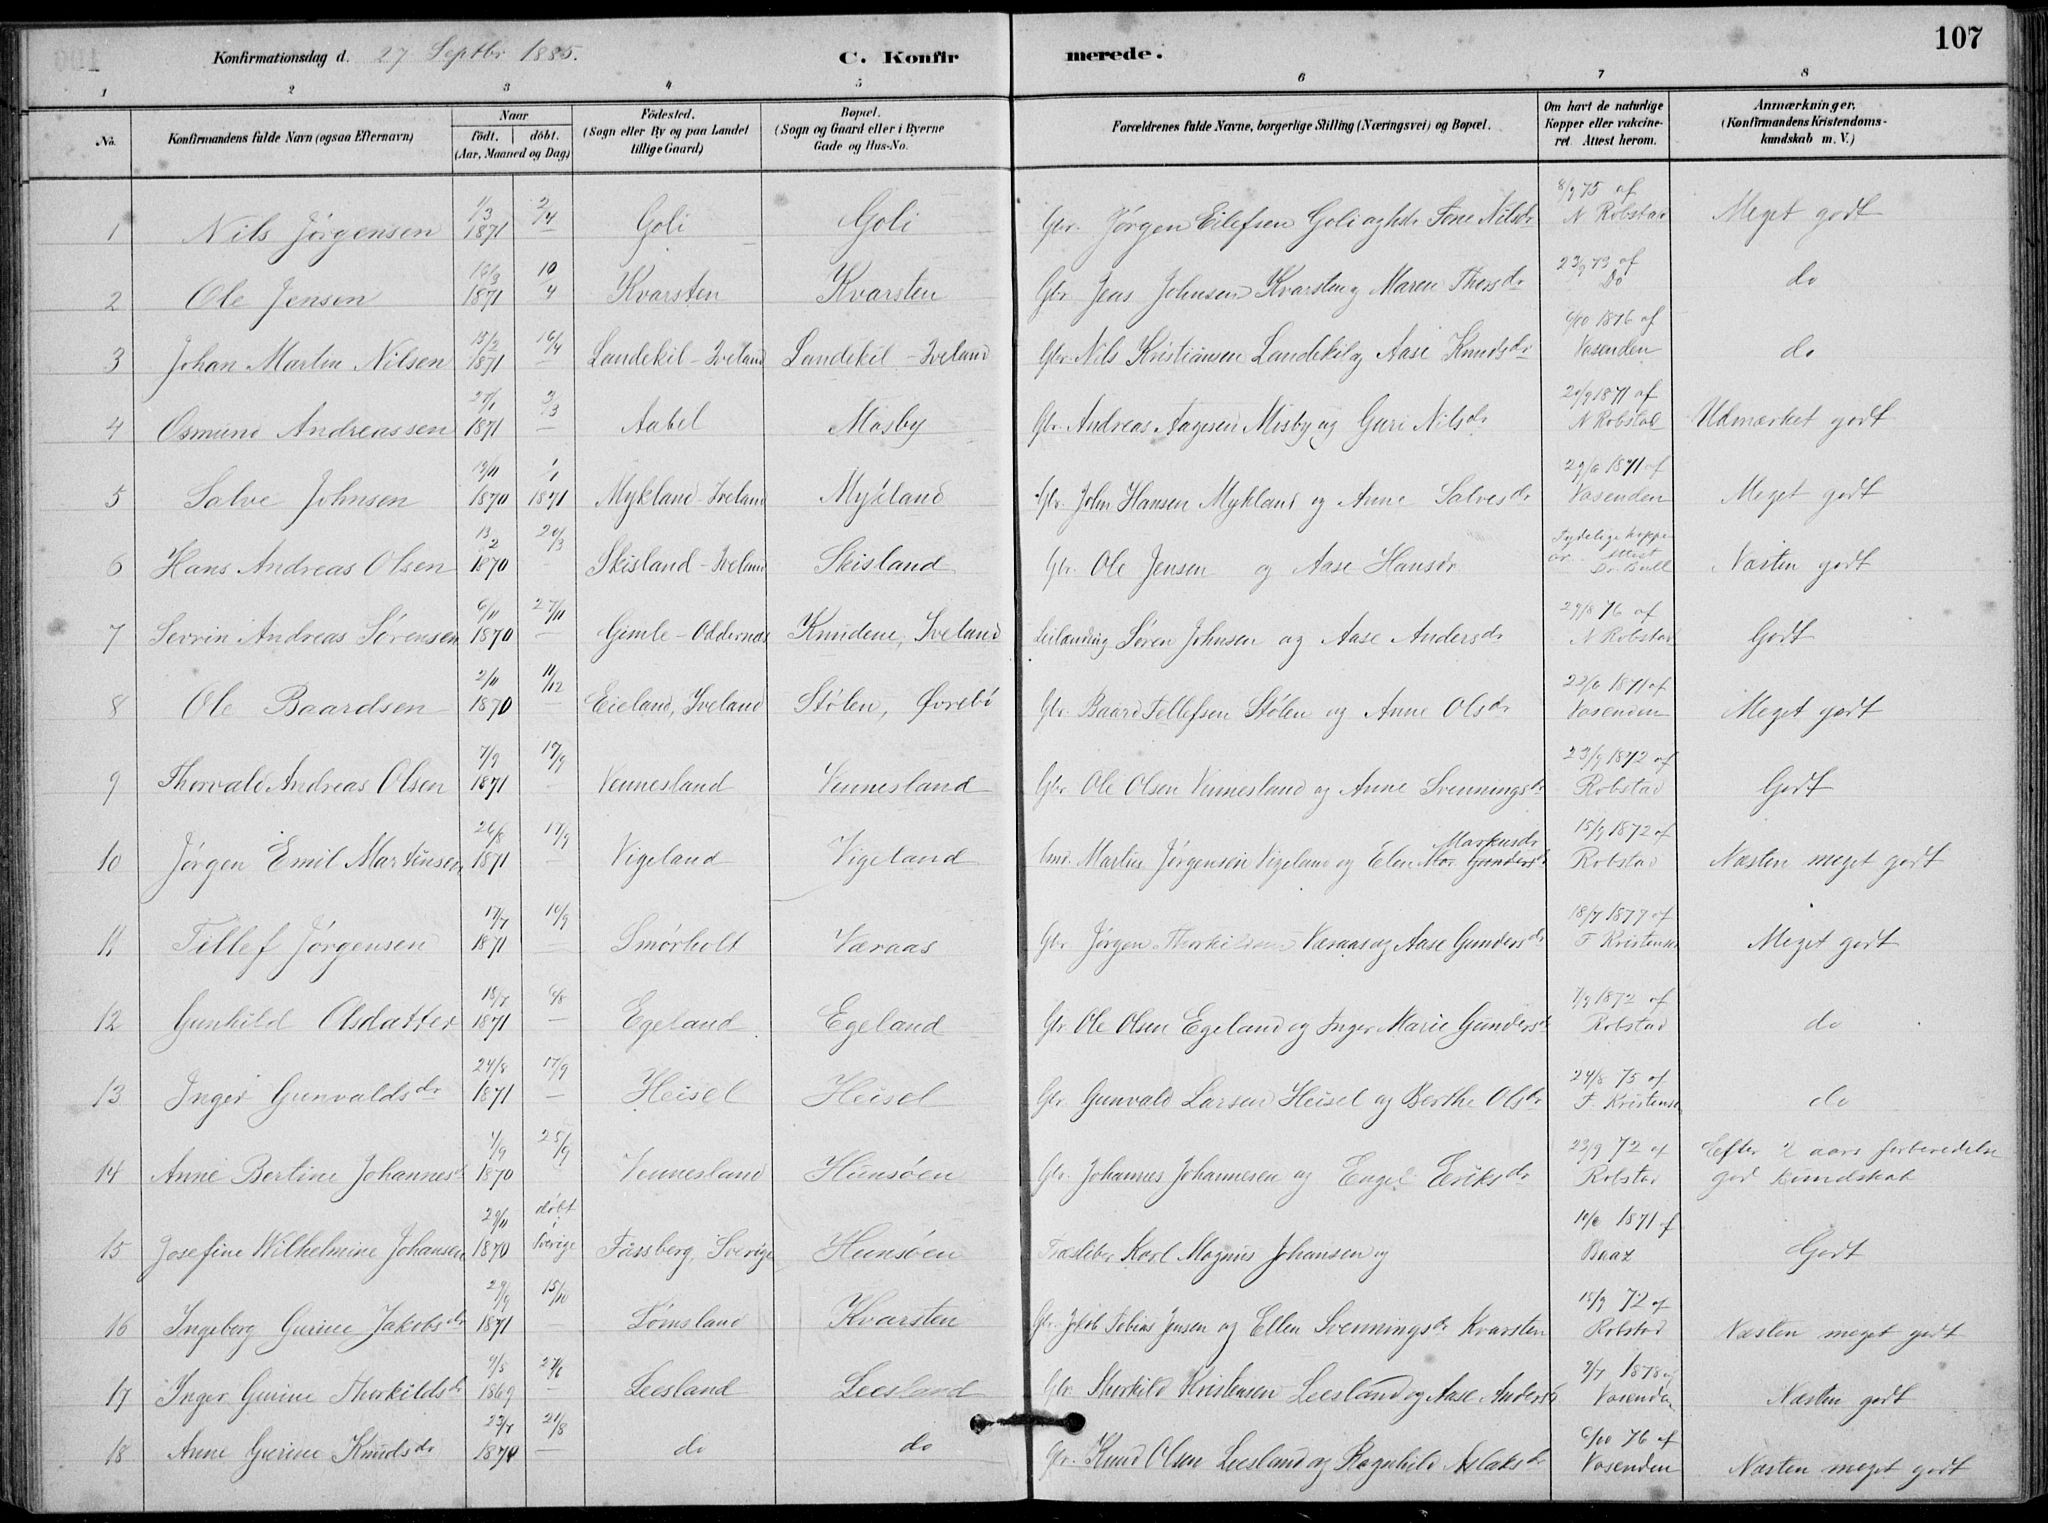 107
Konfirmationsdag d. 27 Septbr 1885.
C. Konfirmerede.
1 2 3 4 5 6 7 8
No.
Konfirmandens fulde Navn (ogsaa Efternavn)
Naar
födt. döbt.
(Aar, Maaned og Dag)
Födested.
(Sogn eller By og paa Landet
tillige Gaard)
Bopæl.
(Sogn og Gaard eller i Byerne
Gade og Hus-No.
Forældrenes fulde Navne, borgerlige Stilling (Næringsvei) og Bopæl.
Om havt de naturlige
Kopper eller vakcine-
ret. Attest herom.
Anmærkninger.
(Konfirmandens Kristendoms-
kundskab m. V.)
1 Nils Jörgensen 1/3 1871 2/4 – Goli Goli Gbr. Jörgen Eilefsen Goli og Tone Nilsdr 8/9 75 af N Robstad Meget godt
2 Ole Jensen 16/3 1871 10/4 Kvarsten Kvarsten Gbr. Jens Johnsen Kvarsten og Maren Thorsdr 23/9 73 af Do do
3 Johan Martin Nilsen 15/2 1871 16/4 – Landekil - Iveland Landekil - Iveland Gbr. Nils Kristiansen Landekil og Aase Knudsdr 6/10 1876 af Vasenden do
4 Osmund Andreassen 27/1 1871 3/3 – Aabel Mosby Gbr. Andreas Aagesen Mosby og Guri Nilsdr 20/9 1871 af N Robstad Udmærket godt
5 Salve Johnsen 19/11 1870 1/1 1871 Mykland - Iveland Mykland Gbr. John Hansen Mykland og Anne Salvesdr 29/6 1871 af Vasenden Meget godt
6 Hans Andreas Olsen 13/2 1870 20/3 – Skisland - Iveland Skisland Gbr. Ole Jensen og Aase Hansdr Tydelige koppe ar. Attest Dr. Bull Næsten godt
7 Sevrin Andreas Sörensen 6/11 1870 27/11 – Gimle - Oddernes Knudene, Iveland Leilænding Sören Johnsen og Aase Andersdr 29/8 76 af N Robstad Godt
8 Ole Baardsen 2/11 1870 11/12 – Eieland, Iveland Stölen, Övrebö Gbr. Baard Tellefsen Stölen og Anne Olsdr 22/6 1871 af Vasenden Meget godt
9 Thorvald Andreas Olsen 7/9 1871 17/9 – Vennesland Vennesland Gbr Ole Olsen Vennesland og Anne Svenningsdr 23/9 1872 af Robstad Godt
10 Jörgen Emil Martinsen 26/8 1871 17/9 – Vigeland Vigeland Martin Jörgensen Vigeland og Elen Markusdr 15/9 1872 af Robstad Næsten meget godt
11 Tellef Jörgensen 17/7 1871 10/9 – Smörholt Væraas Gbr Jörgen Thorkildsen Væraas og Aase Gundersdr 18/7 1877 af T Kristensen Meget godt
12 Gunhild Olsdatter 18/7 1871 6/8 – Egeland Egeland Gbr. Ole Olsen Egeland og Inger Marie Gundersdr 7/9 1872 af Robstad do
13 Inger Gunvaldsdr 24/8 1871 17/9 – Heisel Heisel Gbr. Gunvald Larsen Heisel og Berthe Olsdr 24/8 75 af T. Kristensen do
14 Anne Bertine Johannesdr 1/9 1870 25/9 – Vennesland Hunsöen Gbr. Johannes Johannesen og Engel Eriksdr 23/9 72 af Robstad Efter 2 aars forberedelse god kundskab
15 Josefine Wilhelmine Johansen 29/11 1870 döbt i Sverige Fässberg, Sverige Hunsöen Træsliber Karl Magnus Johansen og 10/6 1871 af Baaz Godt
16 Ingeborg Gurine Jakobsdr 29/9 1871 15/10 – Lömsland Kvarsten Gbr. Jakob Tobias Jensen og Ellen Svenningsdr Kvarsten 15/9 72 af Robstad Næsten meget godt
17 Inger Gurine Thorkildsdr 9/5 1869 27/6 – Leesland Leesland Gbr. Thorkild Kristensen Leesland og Aase Andersdr 2/7 1878 af Vasenden Næsten godt
18 Anne Gurine Knudsdr 23/7 1870 21/8 – do do Gbr. Knud Olsen Leesland og Ragnhild Aslaksdr 6/10 76 af Vasenden Næsten meget godt